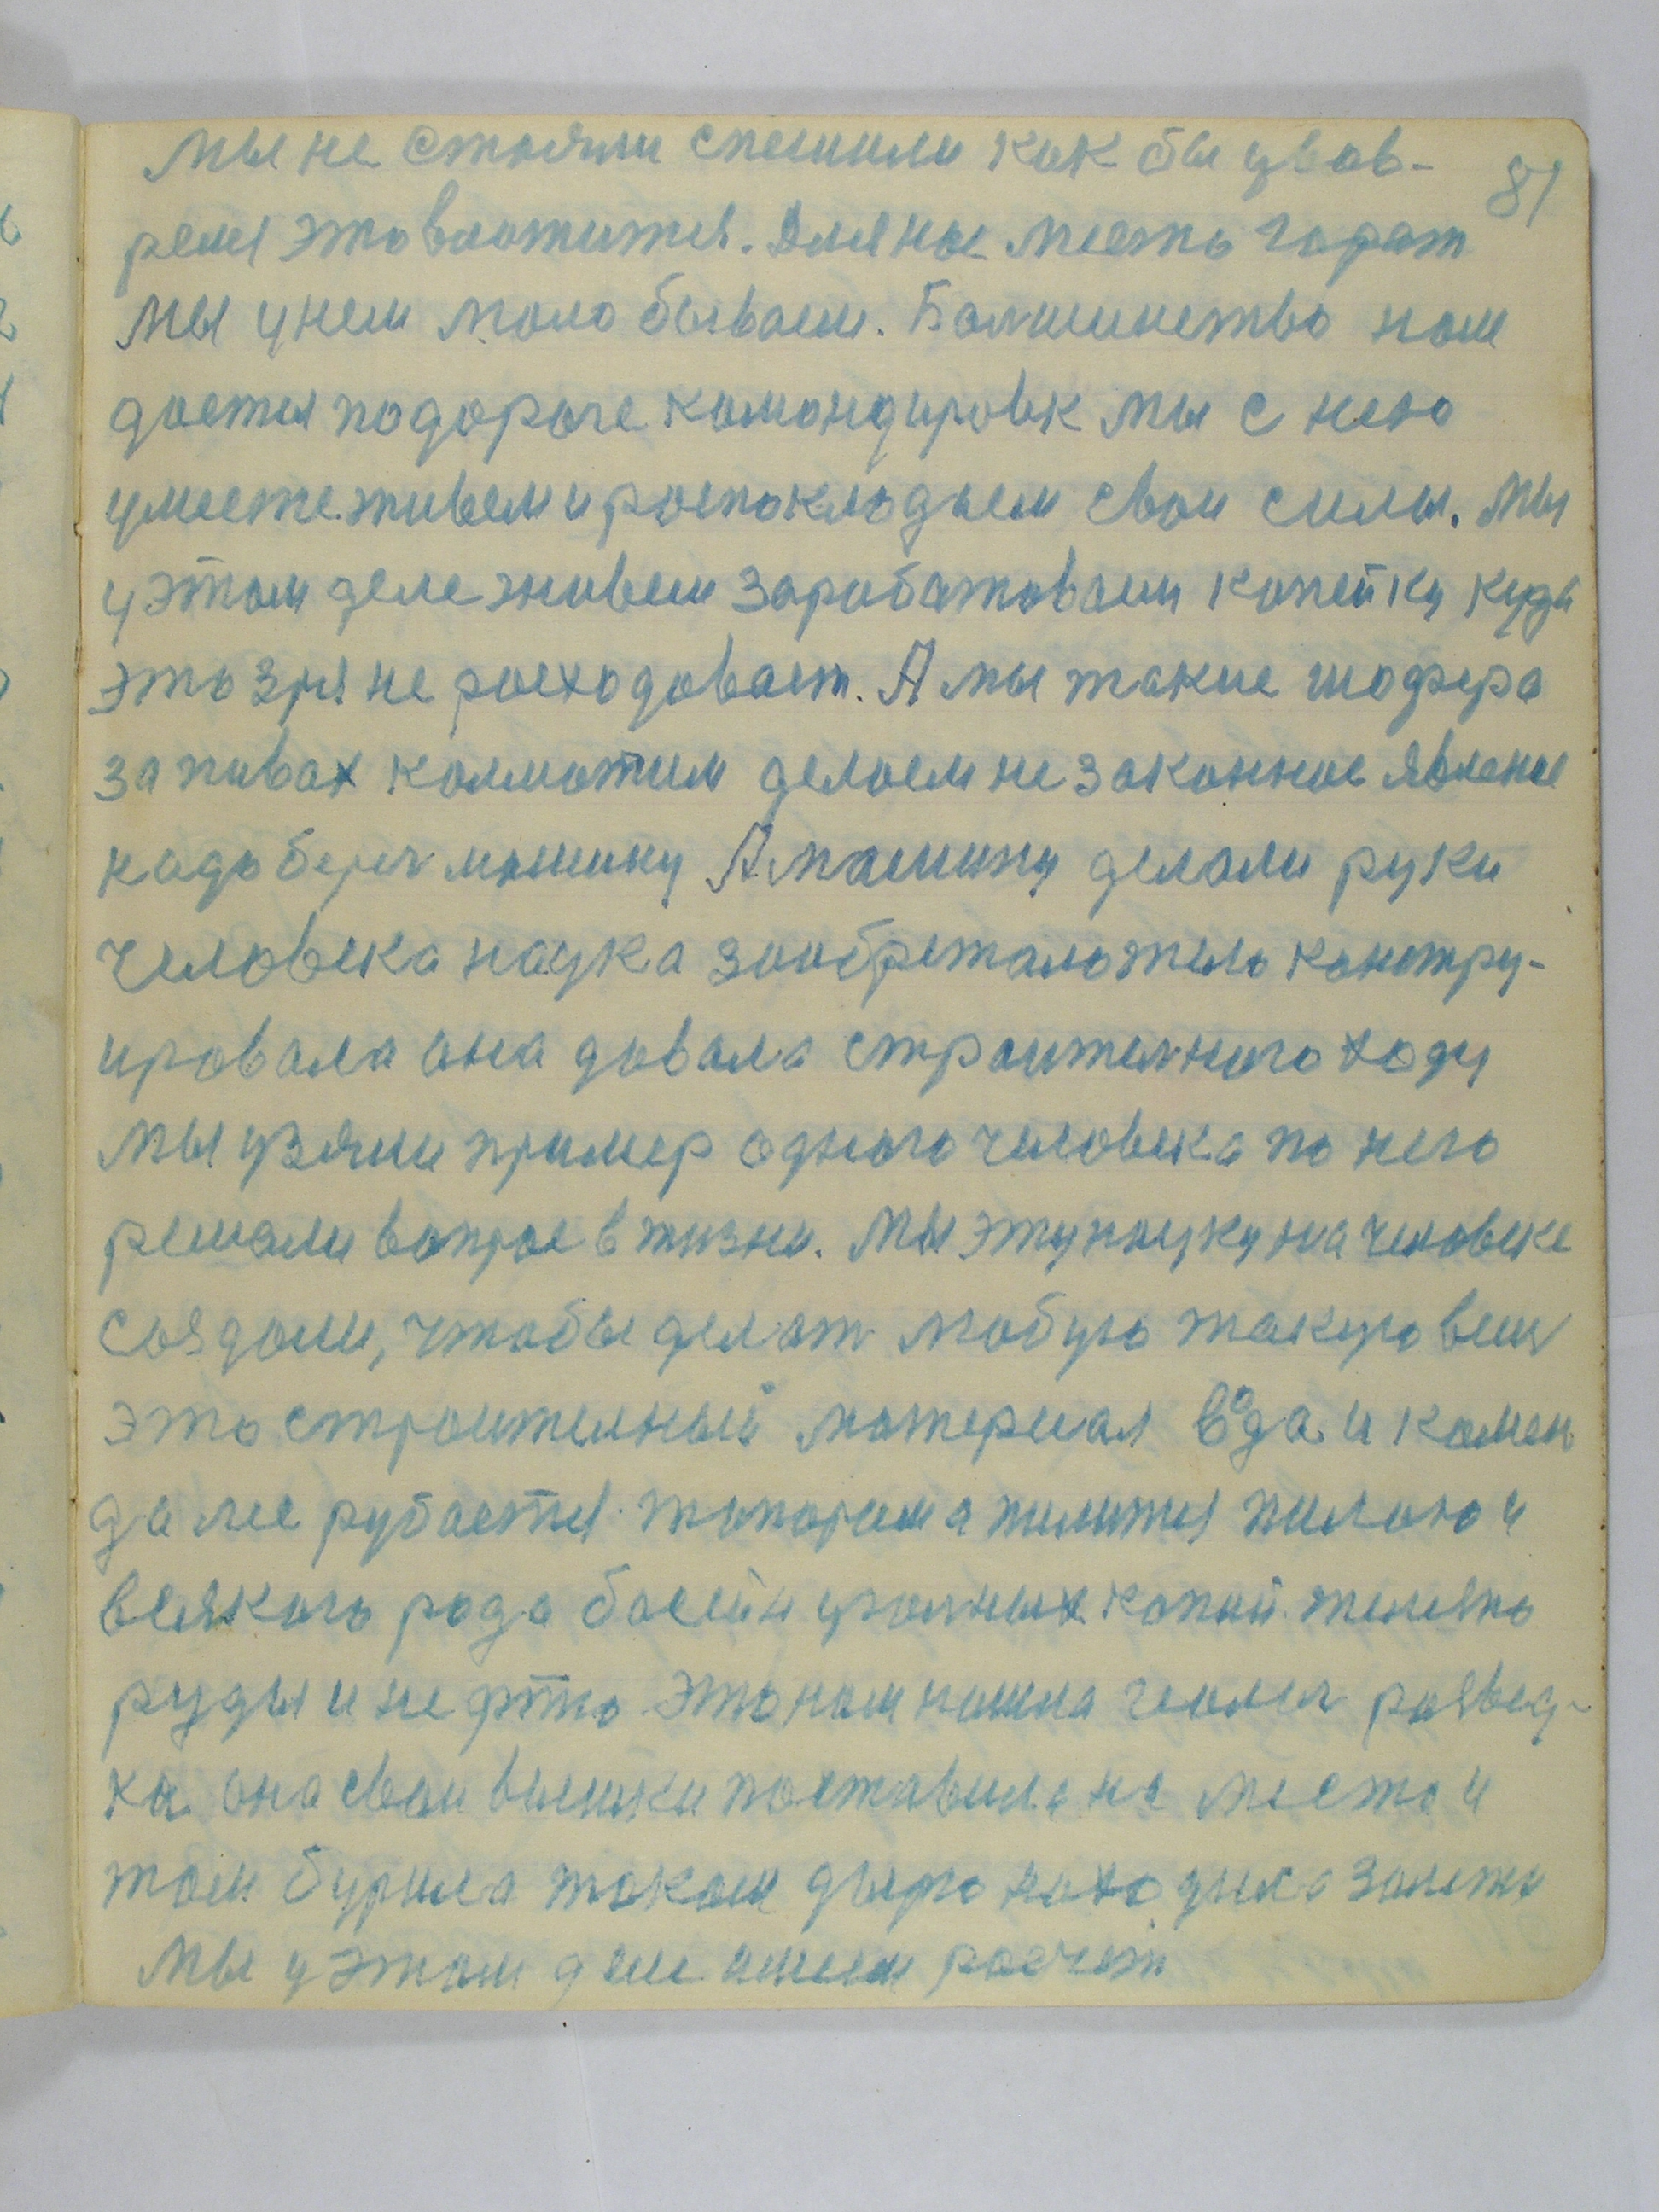 81
мы не стояли спешили как бы увов-
ремя это влотится. Для нас место гарат
мы унем мало бываем. Балшинство нам
дается подороге командировк мы с нею
уместе живем и роспокладуем свои силы. мы
у этом деле живем заработоваем копейку куда
это зря не росходоваем. А мы такие шофера
за пивах калматим делоем не законное явление
надо береч машину А машину делали руки
человека наука зообреталажела констру-
ировала она довала строителного ходу
мы узяли пример одного человека по него
решали вопрос в жизни. Мы эту науку на человеке
создоли, чтобы делат любую такую вещ
это строителный материал вода и камен
да лес рубается топором а пилится пилою и
всякого рода басейн уголных копий железно
руды и нефто это нам нашла геолог розвед-
ка она свои вышки поставила на место и
там бурила таком дыро находила залежи
мы у этом деле имеем росчет